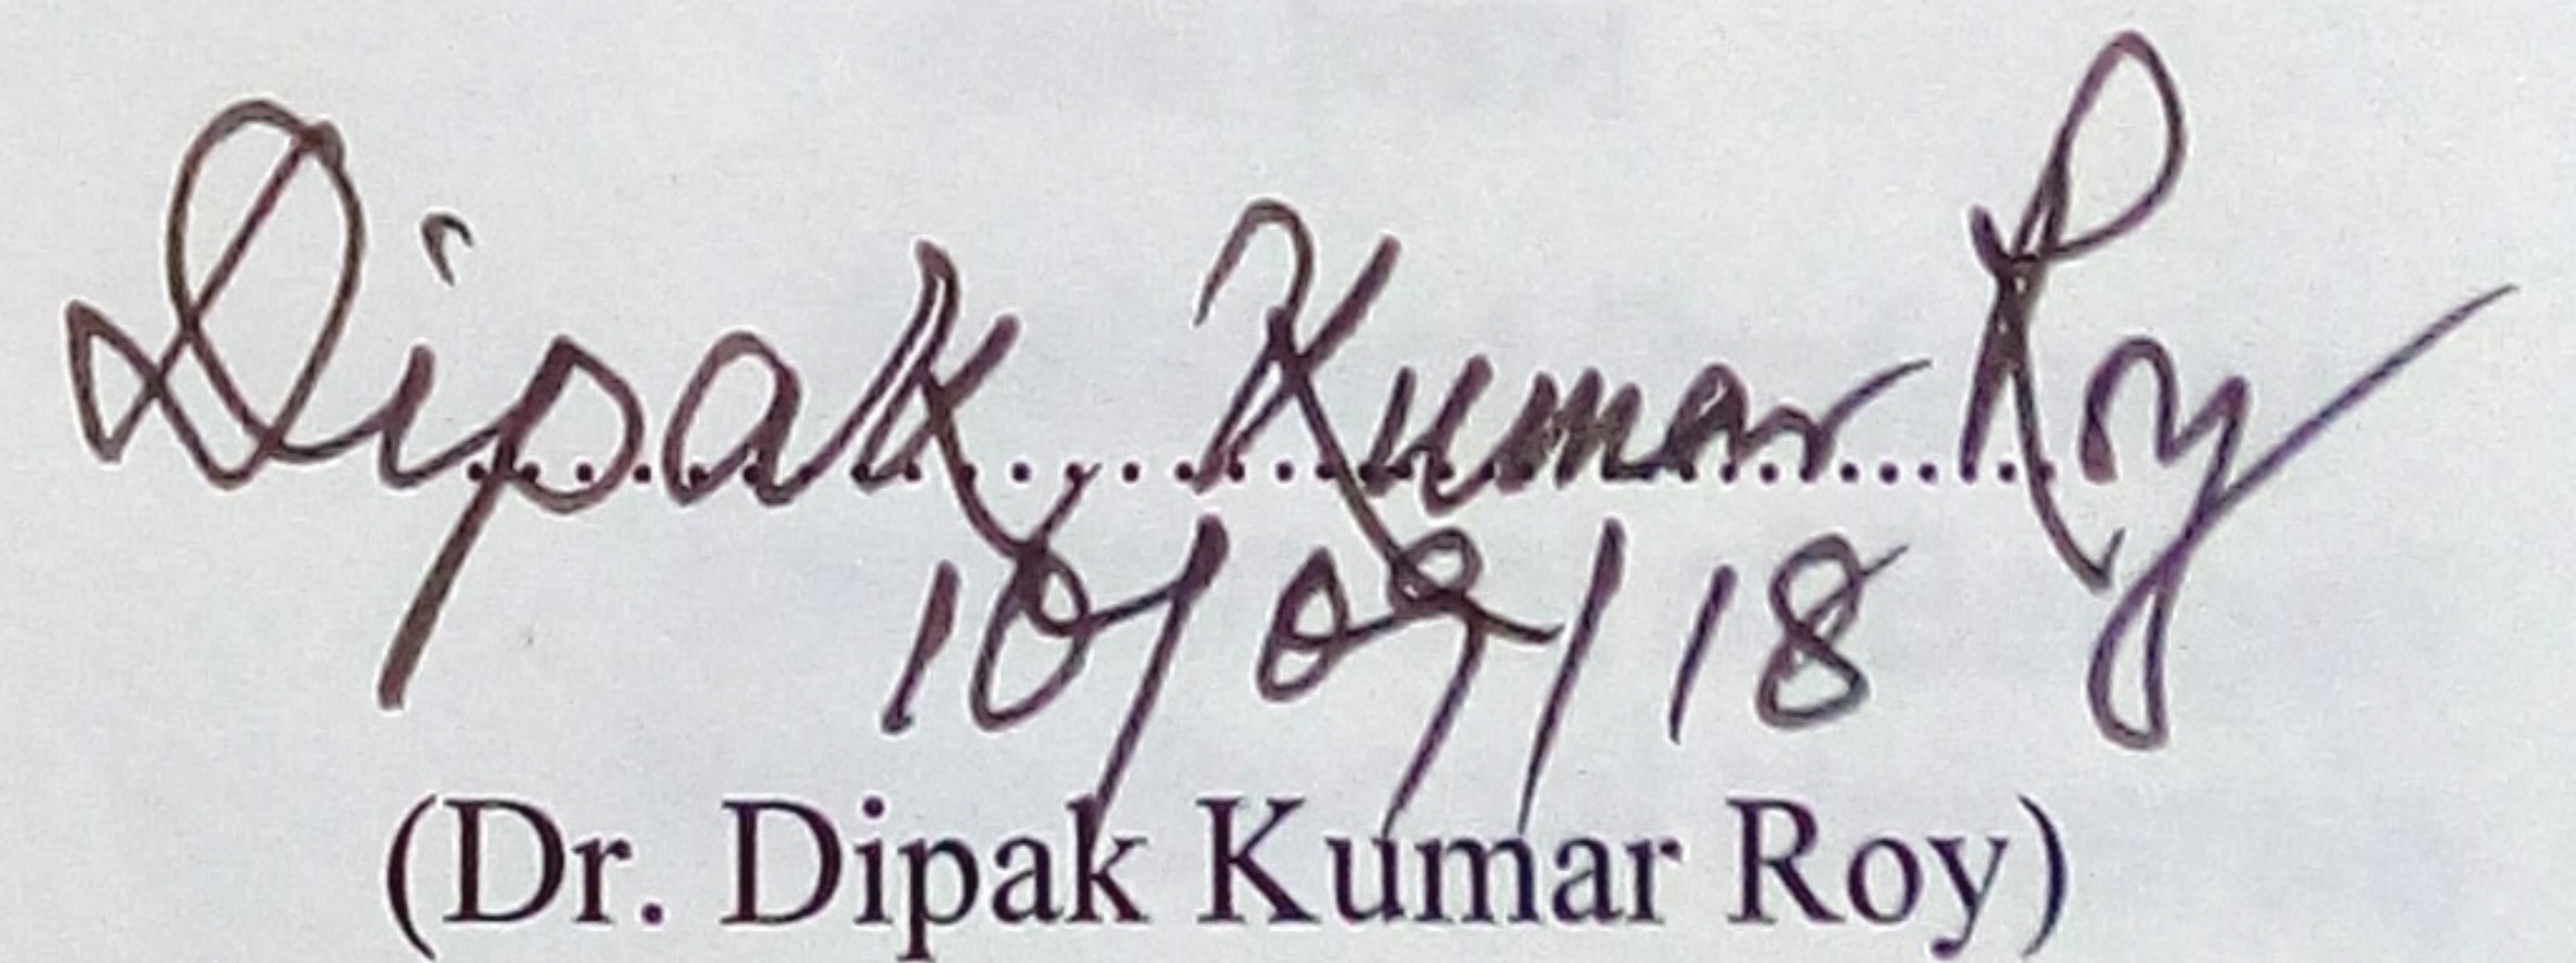 Dipak Kumar Roy
10/09/18
(Dr. Dipak Kumar Roy)